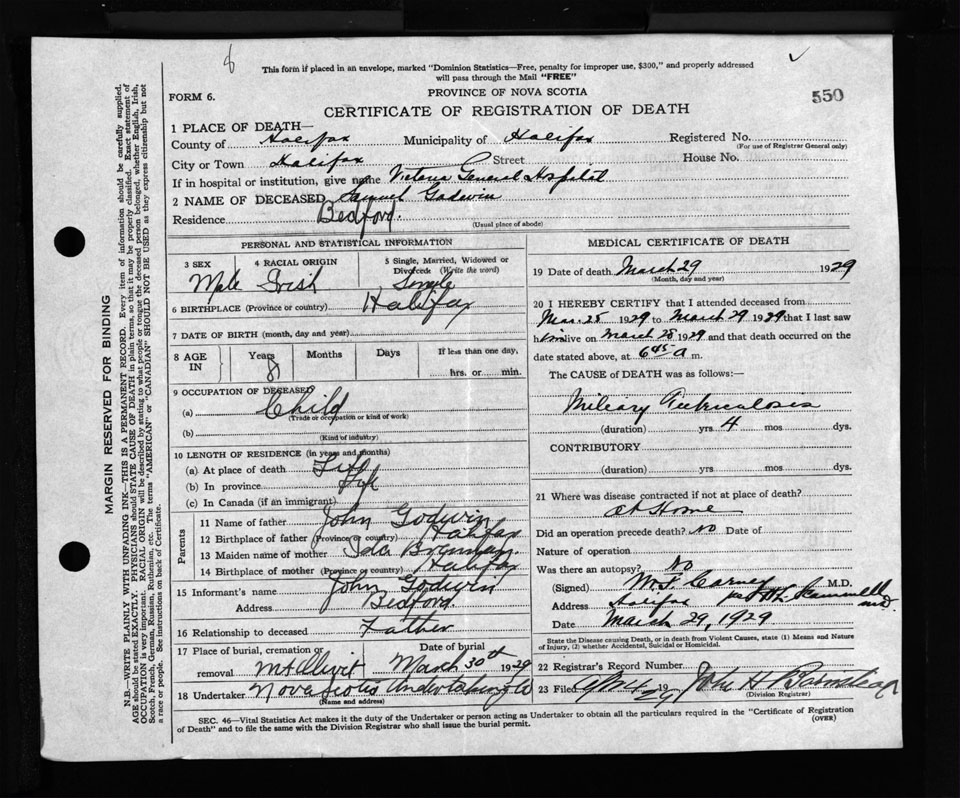 8
This form if placed in an envelope, marked "Dominion Statistics—Free, penalty for improper use, $300," and properly addressed
will pass through the Mail "FREE"
FORM 6.
PROVINCE OF NOVA SCOTIA
550
CERTIFICATE OF REGISTRATION OF DEATH
1 PLACE OF DEATH—
County of Halifax Municipality of Halifax Registered No.
(For use of Registrar General only)
City or Town Halifax Street House No.
If in hospital or institution, give name Victoria General Hospital
2 NAME OF DECEASED Samuel Godwin
Residence Bedford.
(Usual place of abode)
PERSONAL AND STATISTICAL INFORMATION
3 SEX 4 RACIAL ORIGIN 5 Single, Married, Widowed or
Divorced (Write the word)
Male Irish Single
6 BIRTHPLACE (Province or country) Halifax
7 DATE OF BIRTH (month, day and year)
8 AGE IN Years Months Days If less than one day,
8 hrs. or min.
9 OCCUPATION OF DECEASED
(a) Child
(Trade or occupation or kind of work)
(b)
(Kind of industry)
10 LENGTH OF RESIDENCE (in years and months)
(a) At place of death Life
(b) In province Life
(c) In Canada (if an immigrant)
Parents
11 Name of father John Godwin
12 Birthplace of father (Province or country) Halifax
13 Maiden name of mother Ida
14 Birthplace of mother (Province or country) Halifax
15 Informant's name John Godwin
Address Bedford.
16 Relationship to deceased Father
17 Place of burial, cremation or Date of burial
removal Mt Olivit March 30th 1929
18 Undertaker Nova Scotia Undertaking Co
(Name and address)
MEDICAL CERTIFICATE OF DEATH
19 Date of death March 29 1929
(Month, day and year)
20 I HEREBY CERTIFY that I attended deceased from
Mar. 25 1929 to March 29 1929 that I last saw
him alive on March 28 1929 and that death occurred on the
date stated above, at 6 45 a m.
The CAUSE of DEATH was as follows:—
Miliary Tuberculosis
(duration) yrs 4 mos dys.
CONTRIBUTORY
(duration) yrs mos dys.
21 Where was disease contracted if not at place of death?
at Home
Did an operation precede death? No Date of
Nature of operation
Was there an autopsy? No
(Signed) W. J. Carney M.D.
Address Halifax per Scammell
Date March 29, 1929
State the Disease causing Death, or in death from Violent Causes, state (1) Means and Nature
of Injury, (2) whether Accidental, Suicidal or Homicidal.
22 Registrar's Record Number
23 Filed 19 29 John H Barnstead
(Division Registrar)
SEC. 46—Vital Statistics Act makes it the duty of the Undertaker or person acting as Undertaker to obtain all the particulars required in the "Certificate of Registration
of Death" and to file the same with the Division Registrar who shall issue the burial permit.
(OVER)
MARGIN RESERVED FOR BINDING
N.B.—WRITE PLAINLY WITH UNFADING INK—THIS IS A PERMANENT RECORD. Every item of information should be carefully supplied.
AGE should be stated EXACTLY. PHYSICIANS should STATE CAUSE OF DEATH in plain terms, so that it may be properly classified. Exact statement of
OCCUPATION is very important. RACIAL ORIGIN will be described by stating to what people or tongue the deceased person belonged, whether English, Irish,
Scotch, French, German, Russian, Ruthenian, etc. The terms "AMERICAN" or "CANADIAN" SHOULD NOT BE USED as they express citizenship but not
a race or people. See instructions on back of Certificate.